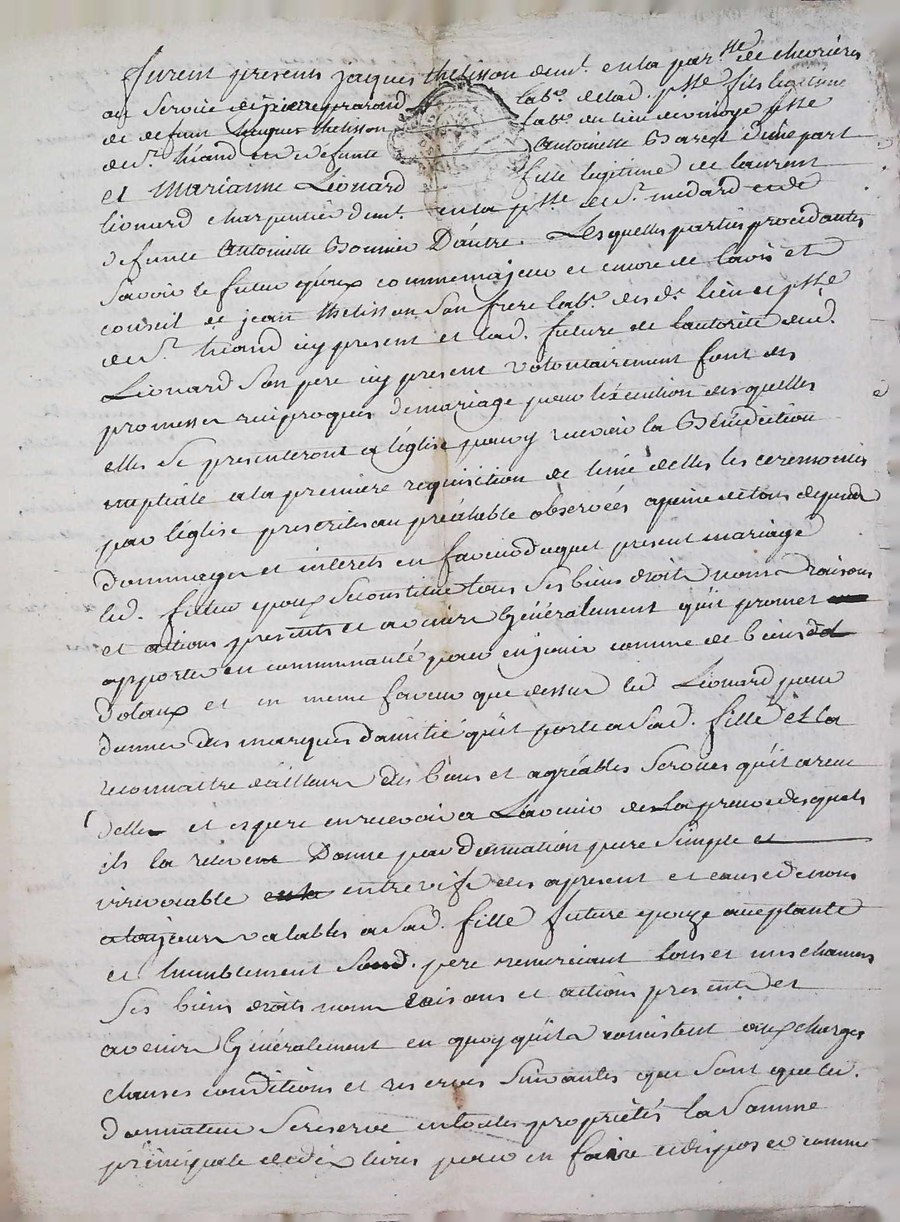 furent presents jaques thelisson demt. en la parsse de chevrieres
au service de pierre grarard labr. de lad. psse fils legitime
de defunt jaques thelisson labr. du lieu de moye psse
de st. hiand et de défunte Antoinette Barest d'une part
et Marianne Léonard fille legitime de laurent
lionard charpentier demt. en la psse de st. medard et de
defunte Antoinette Bonnier D'autre. Lesquelles parties procedantes
savoir le futur epoux comme majeur et encore de lavis et
conseil de jean thelisson son frere labr. du d. lieu et psse
de st. hiand icy present et lad. future de l'autorité dud.
Léonard son pere icy present volontairement font des
promesses reciproques de mariage pour l'éxécution des quelles
elles se presenteront a l'église pour y recevoir la Bénédiction
nuptiale a la premiere requisition de l'une delles les ceremonies
par l'église prescrites au préalable observées a peine de tous depens
dommages et interets en faveur duquel present mariage
led. futur epoux se constitue tous ses biens droits noms raisons
et actions presents et avenir Généralement qu'il promet
apporter en communauté pour en jouir comme de biens
dotaux et en meme faveur que dessus led Léonard pour
donner des marques d'amitié qu'il porte a sad. fille et la
reconnaitre d'ailleurs des bons et agréables services qu'il a reçu
delle et espere en recevoir a L'avenir de la preuve desquels
ils la releve Donne par donnation pure simple et
irrevocable entre vifs des apresent et cause de nous
a toujours valables a sad. fille future epouze acceptante
et humblement sond. pere remerciant tous et uns chacuns
ses biens droits noms raisons et actions presents et
avenir Généralement en quoy qu'ils consistent aux charges
clauses conditions et reserves suivantes que sont que led.
donnateur se reserve en toutes propriétés la somme
principale de dix livres pour en faire et disposer comme